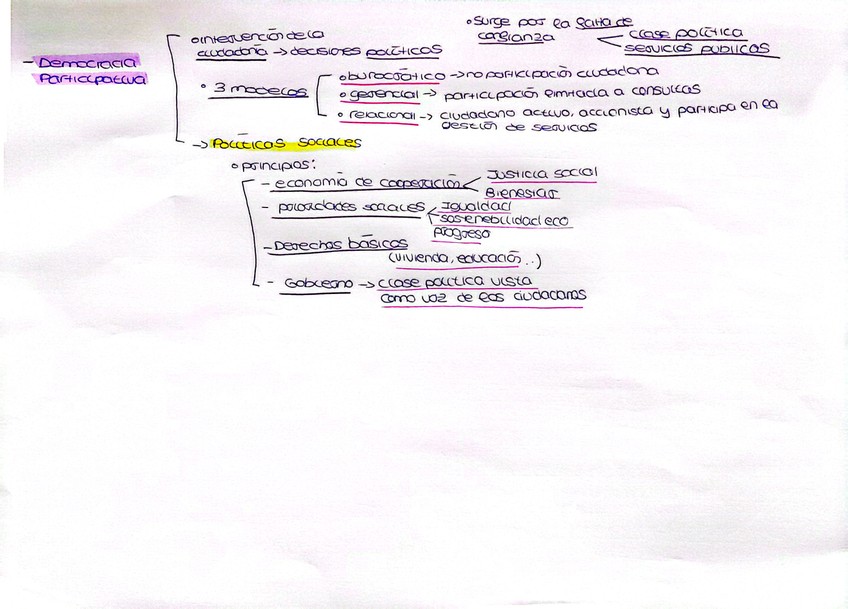 - Democracia
Participativa
• intervención de la
ciudadanía → decisiones políticas
• surge por la falta de
confianza
clase política
servicios públicos
• 3 modelos
• burocrático → no participación ciudadana
• gerencial → participación limitada a consultas
• relacional → ciudadano activo, accionista y participa en la
gestión de servicios
→ Políticas sociales
• principios:
- economía de cooperación
Justicia social
Bienestar
- prioridades sociales
Igualdad
sostenibilidad eco
progreso
- Derechos básicos
(vivienda, educación...)
- Gobierno → clase política vista
como voz de los ciudadanos